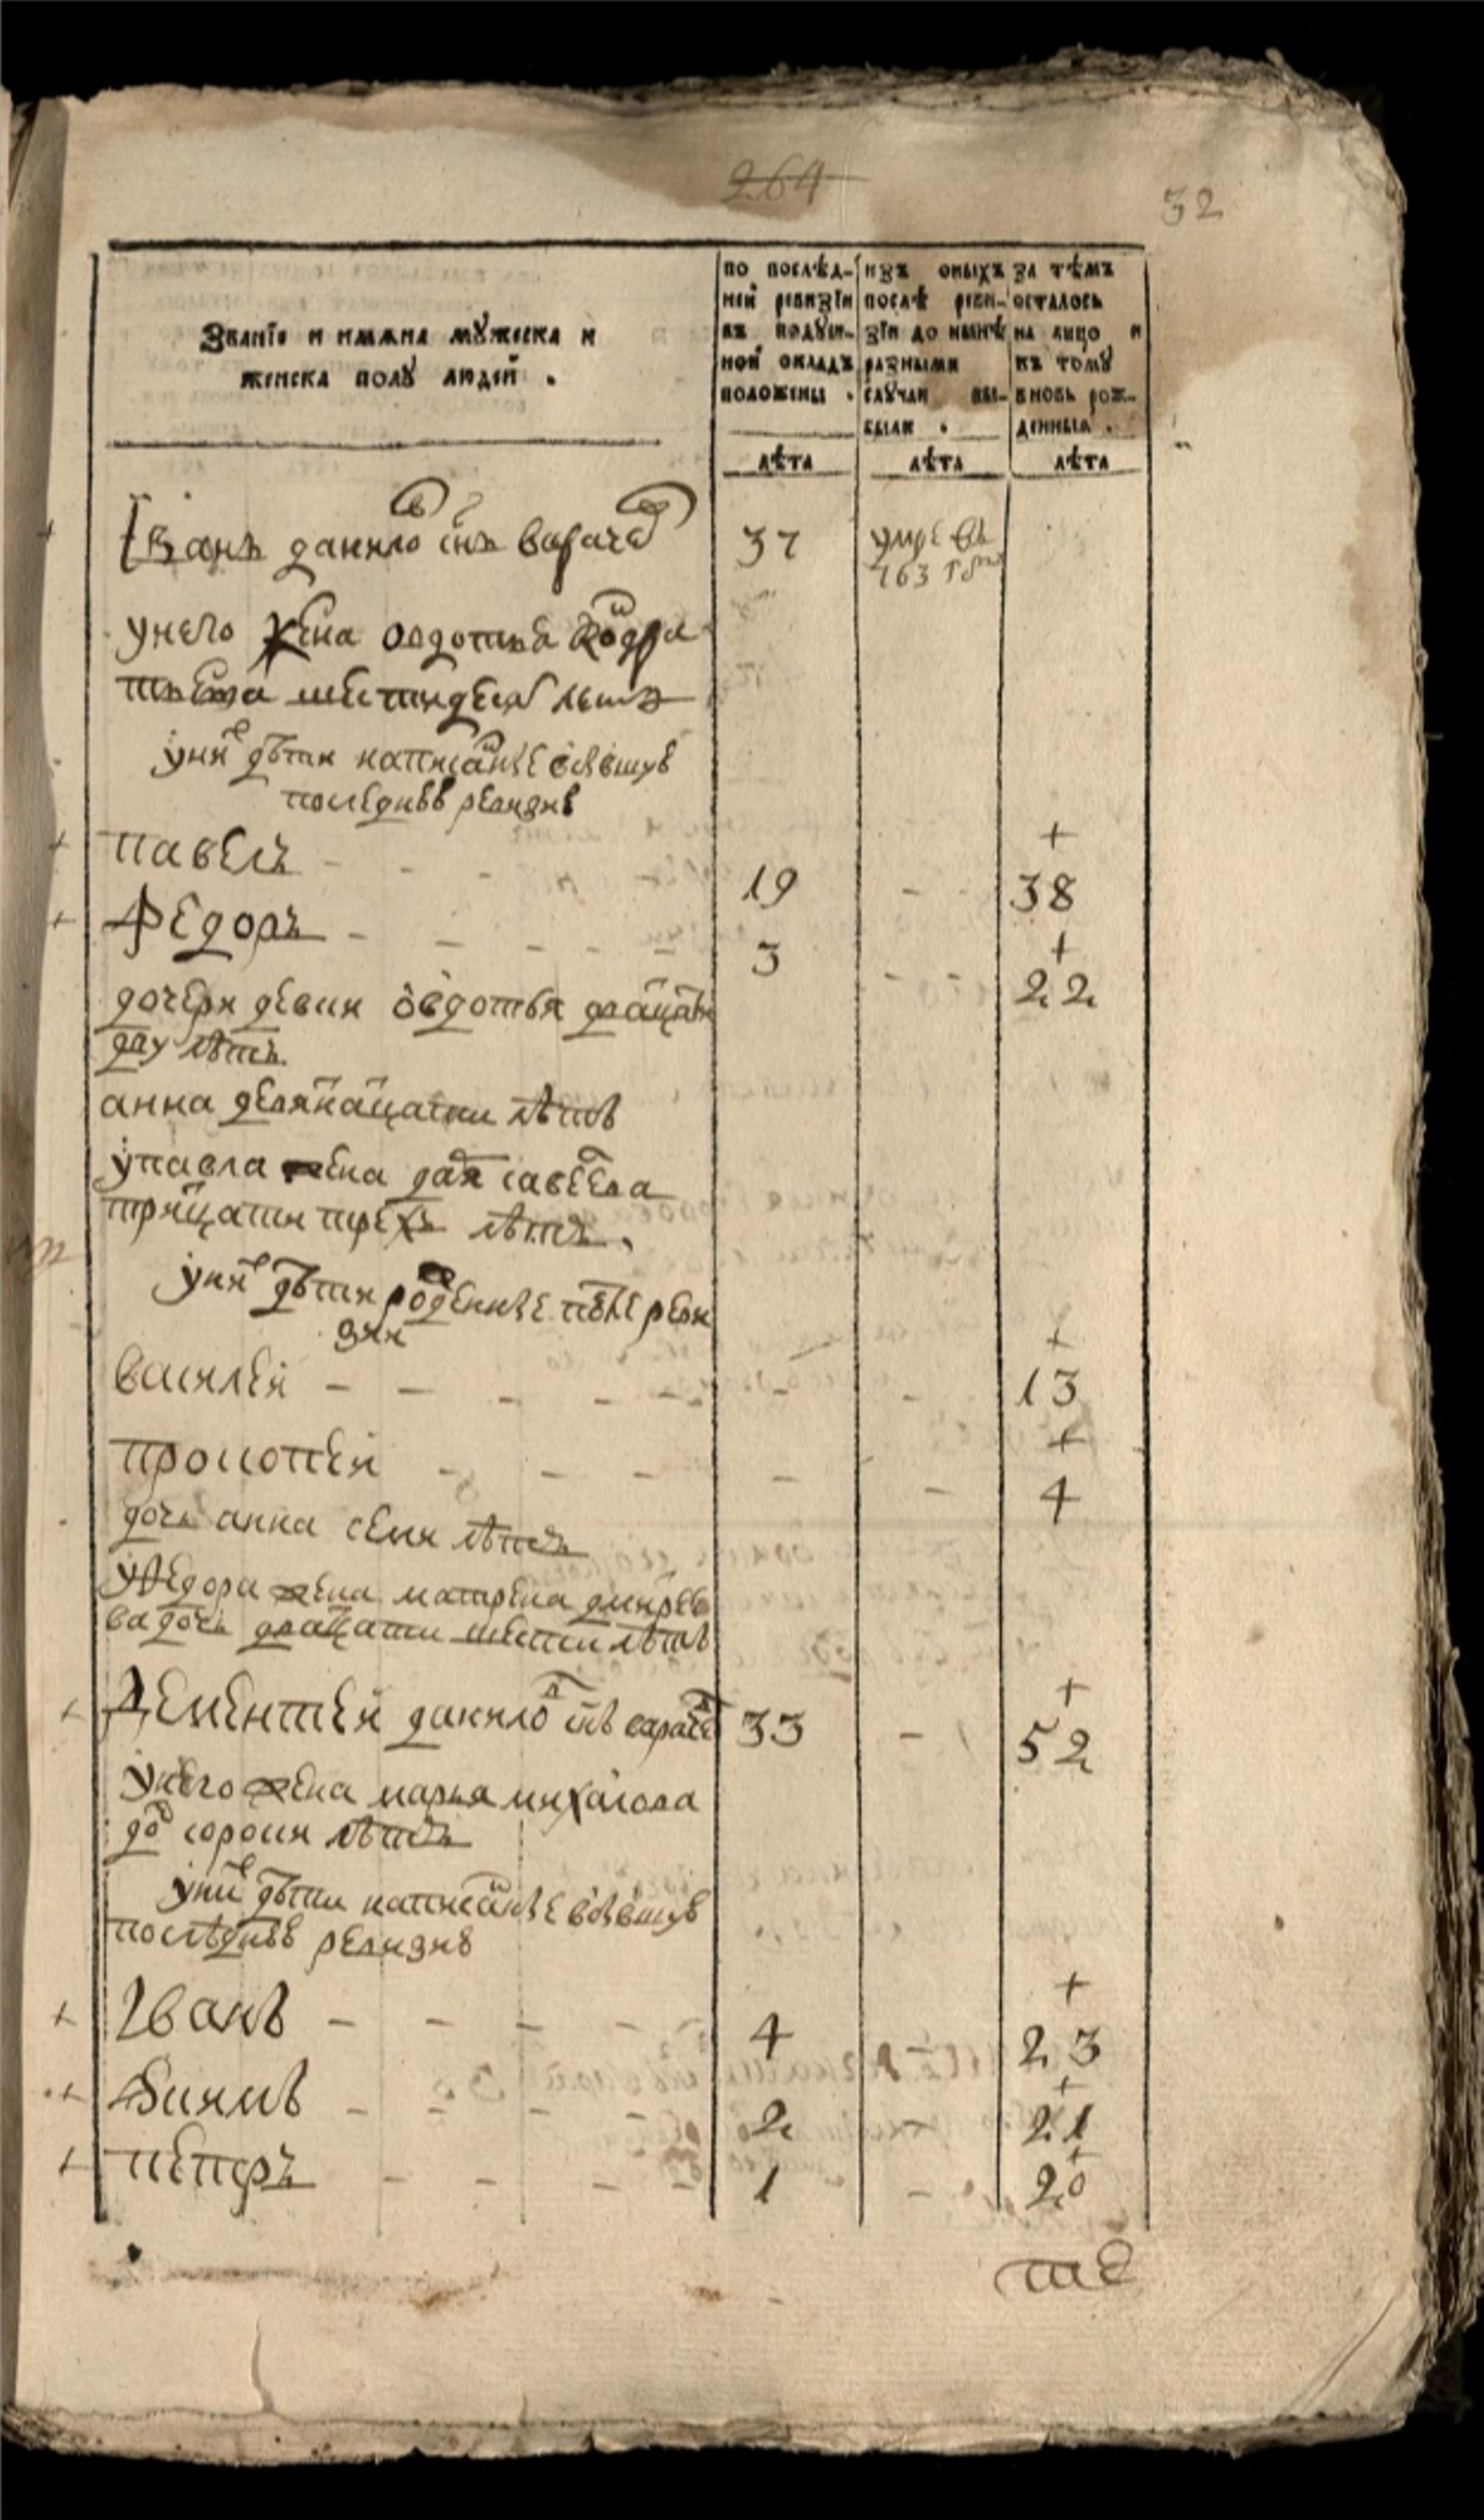 264
32
Званїе и имѧна мꙋжеска и
женска полꙋ людей .
по послѣд-
ней ревизїи
въ подꙋш-
ной окладъ
положены .
изъ оныхъ
послѣ реви-
зїи до нынѣ
разными
слꙋчаи вы-
были .
за тѣмъ
осталось
на лицо и
къ томꙋ
вновь рож-
денныѧ .
лѣта лѣта лѣта
Иванъ данило снъ 37 умре въ
763 году
унего жена овдотья кодра
тьева шестидесят летъ
униⷯ дѣти написаные
последнѣѣ ревизиѣ
+ павелъ - - - 19 - + 38
+ Федоръ - - - - - 3 - - + 22
дочери девки овдотья дватцат
дву лѣтъ
анна девятнатцати лѣтъ
упавла жена дария савеева
тритцати трехъ лѣтъ
униⷯ дѣти рожденые после реви
зии
василеи - - - - - - - + 13
прокопеи - - - - - + 4
дочь анна семи лѣтъ
уФедора жена матрена дмитрев
ва дочь дватцати шести лѣтъ
+ Дементеи данило снъ 33 - + 52
унего жена марья михаилова
доч сорока лѣтъ
униⷯ дѣти написаные
послѣднѣѣ ревизиѣ
+ Иванъ - - - - - 4 - + 23
+ Якимъ - - - - 2 - + 21
+ петръ - - - - 1 - + 20